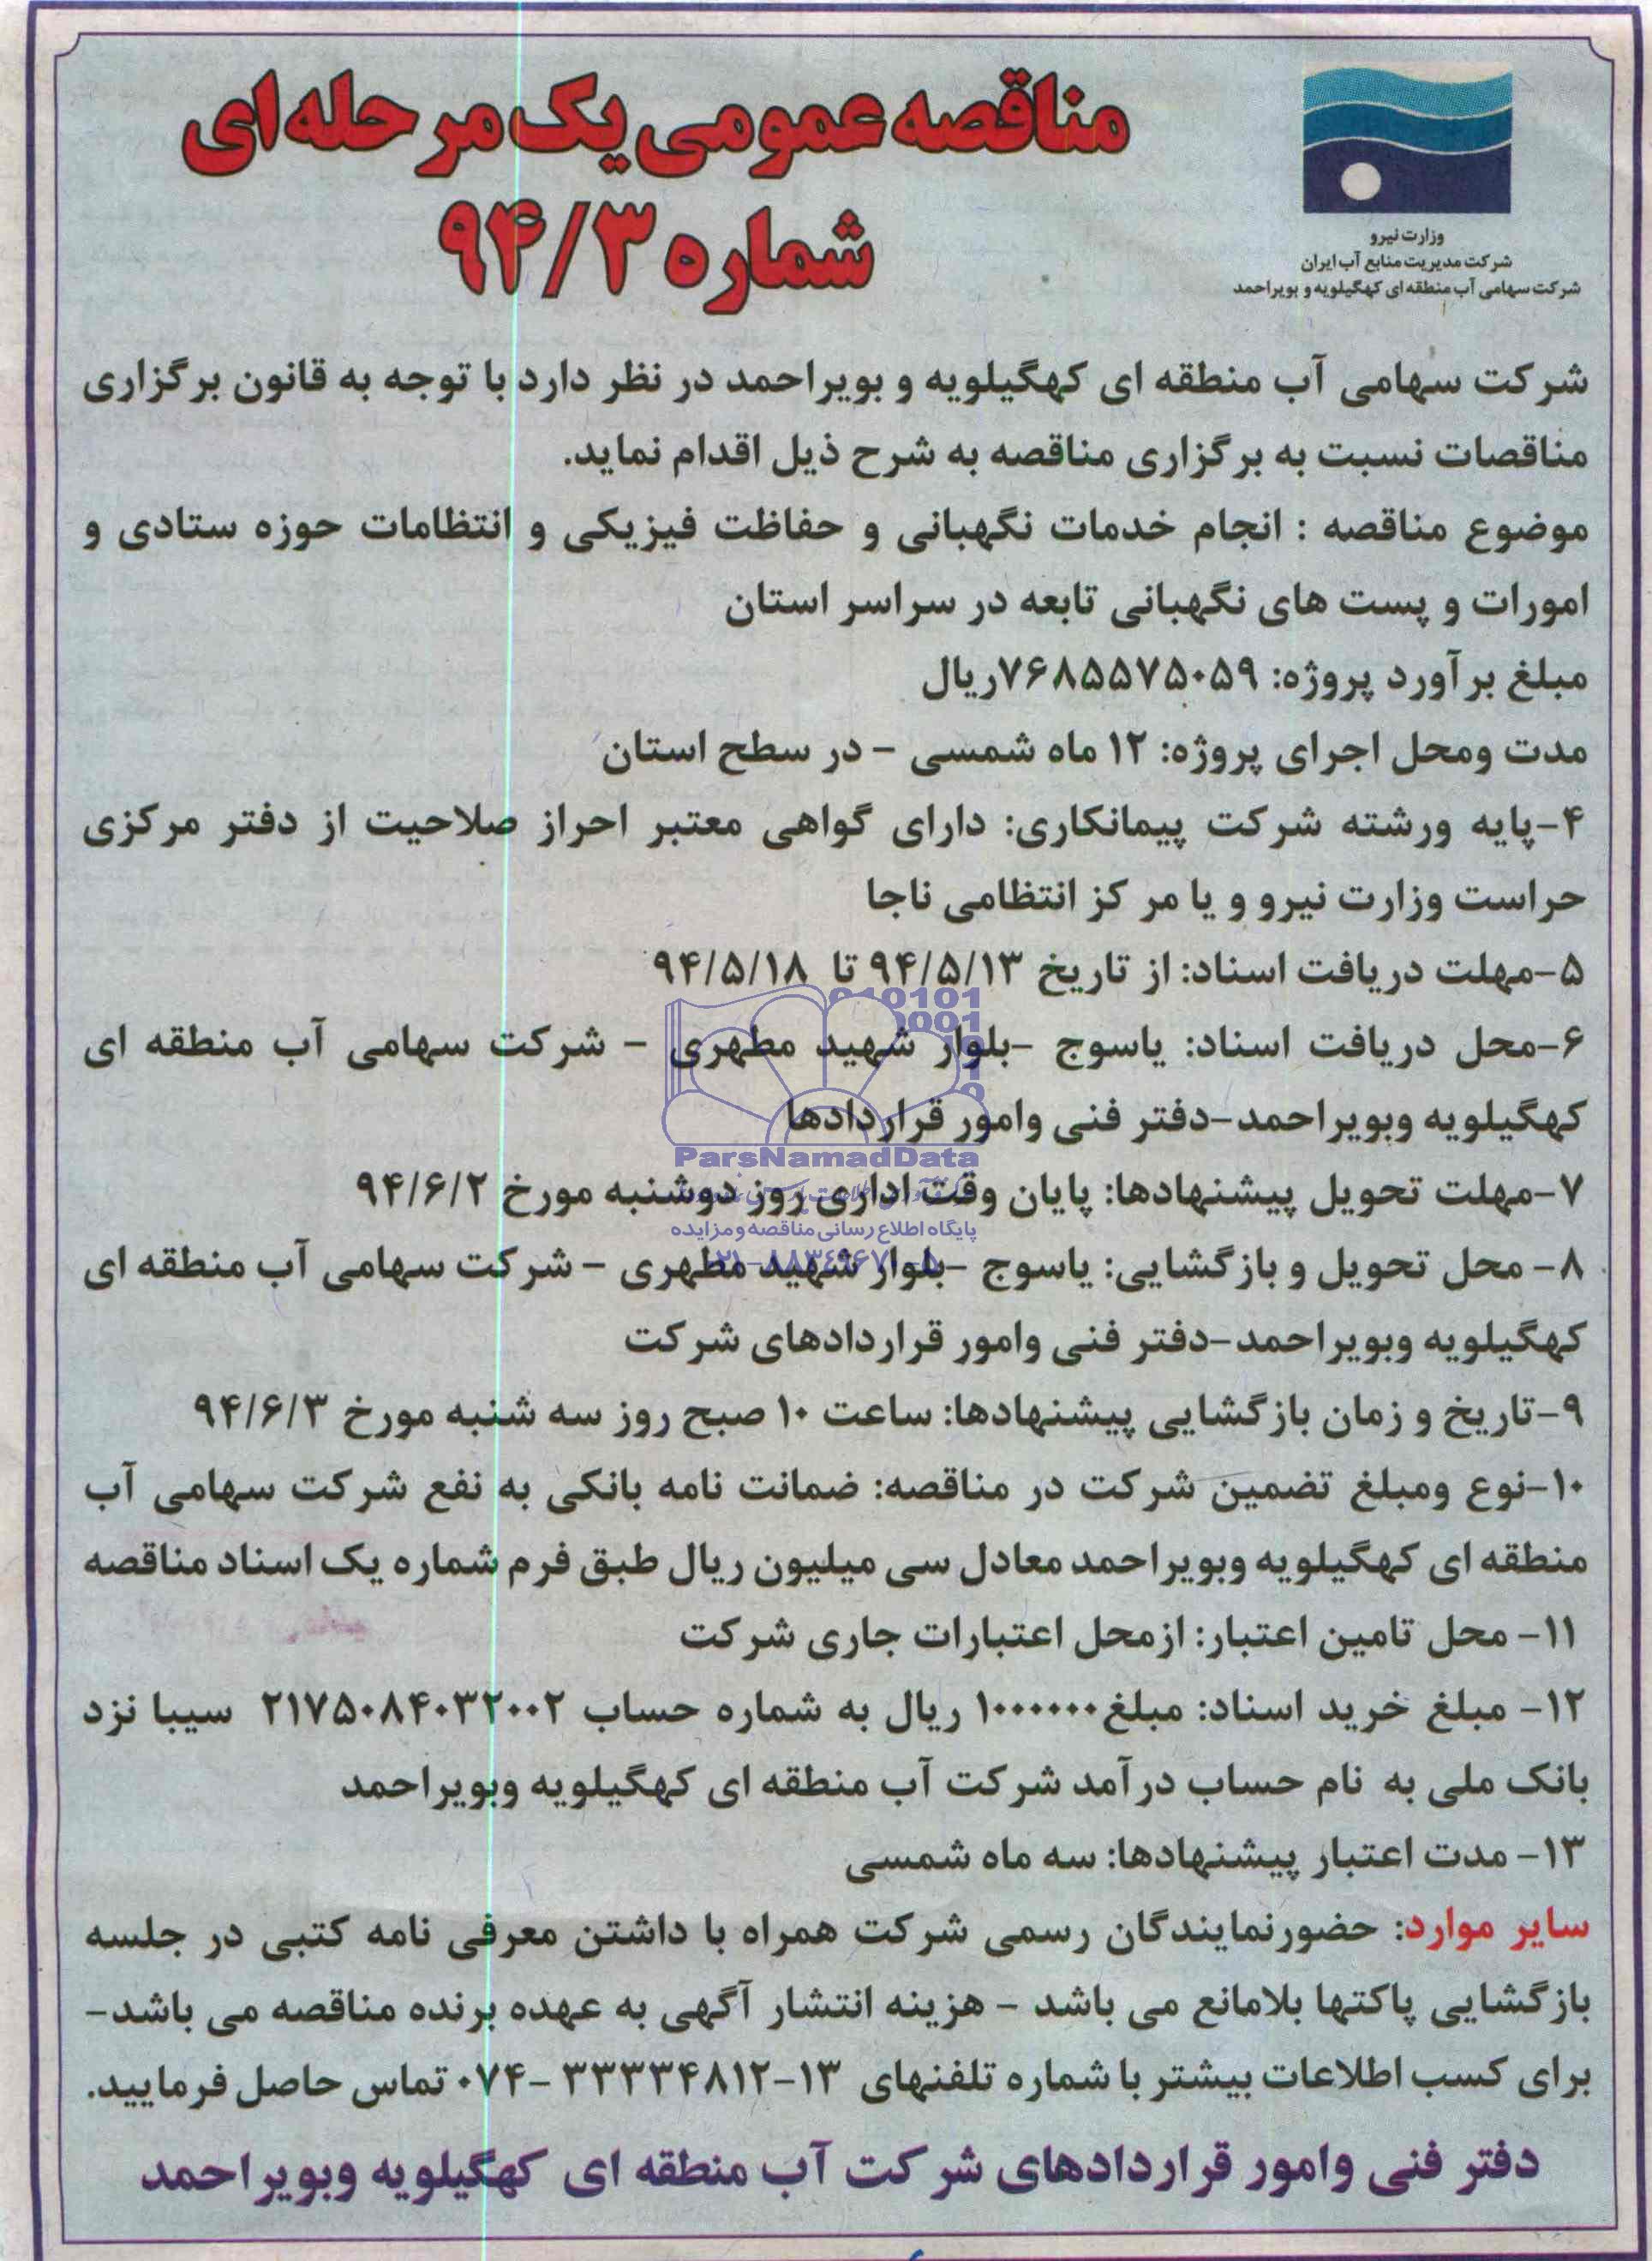 مناقصه عمومی یک مرحله ای
شماره ۹۴/۳
وزارت نیرو
شرکت مدیریت منابع آب ایران
شرکت سهامی آب منطقه ای کهگیلویه و بویراحمد
شرکت سهامی آب منطقه ای کهگیلویه و بویراحمد در نظر دارد با توجه به قانون برگزاری
مناقصات نسبت به برگزاری مناقصه به شرح ذیل اقدام نماید.
موضوع مناقصه : انجام خدمات نگهبانی و حفاظت فیزیکی و انتظامات حوزه ستادی و
امورات و پست های نگهبانی تابعه در سراسر استان
مبلغ برآورد پروژه: ۷۶۸۵۵۷۵۰۵۹ریال
مدت ومحل اجرای پروژه: ۱۲ ماه شمسی - در سطح استان
۴-پایه ورشته شرکت پیمانکاری: دارای گواهی معتبر احراز صلاحیت از دفتر مرکزی
حراست وزارت نیرو و یا مرکز انتظامی ناجا
۵-مهلت دریافت اسناد: از تاریخ ۹۴/۵/۱۳ تا ۹۴/۵/۱۸
۶-محل دریافت اسناد: یاسوج -بلوار شهید مطهری - شرکت سهامی آب منطقه ای
کهگیلویه وبویراحمد-دفتر فنی وامور قراردادها
ParsNamadData
۷-مهلت تحویل پیشنهادها: پایان وقت اداری روز دوشنبه مورخ ۹۴/۶/۲
پایگاه اطلاع رسانی مناقصه و مزایده
۸- محل تحویل و بازگشایی: یاسوج -بلوار شهید مطهری - شرکت سهامی آب منطقه ای
کهگیلویه وبویراحمد-دفتر فنی وامور قراردادهای شرکت
۹-تاریخ و زمان بازگشایی پیشنهادها: ساعت ۱۰ صبح روز سه شنبه مورخ ۹۴/۶/۳
۱۰-نوع ومبلغ تضمین شرکت در مناقصه: ضمانت نامه بانکی به نفع شرکت سهامی آب
منطقه ای کهگیلویه وبویراحمد معادل سی میلیون ریال طبق فرم شماره یک اسناد مناقصه
۱۱- محل تامین اعتبار: ازمحل اعتبارات جاری شرکت
۱۲- مبلغ خرید اسناد: مبلغ۱۰۰۰۰۰۰ ریال به شماره حساب ۲۱۷۵۰۸۴۰۳۲۰۰۲ سیبا نزد
بانک ملی به نام حساب درآمد شرکت آب منطقه ای کهگیلویه وبویراحمد
۱۳- مدت اعتبار پیشنهادها: سه ماه شمسی
سایر موارد: حضورنمایندگان رسمی شرکت همراه با داشتن معرفی نامه کتبی در جلسه
بازگشایی پاکتها بلامانع می باشد - هزینه انتشار آگهی به عهده برنده مناقصه می باشد-
برای کسب اطلاعات بیشتر با شماره تلفنهای ۱۳-۳۳۳۳۴۸۱۲ -۰۷۴ تماس حاصل فرمایید.
دفتر فنی وامور قراردادهای شرکت آب منطقه ای کهگیلویه وبویراحمد